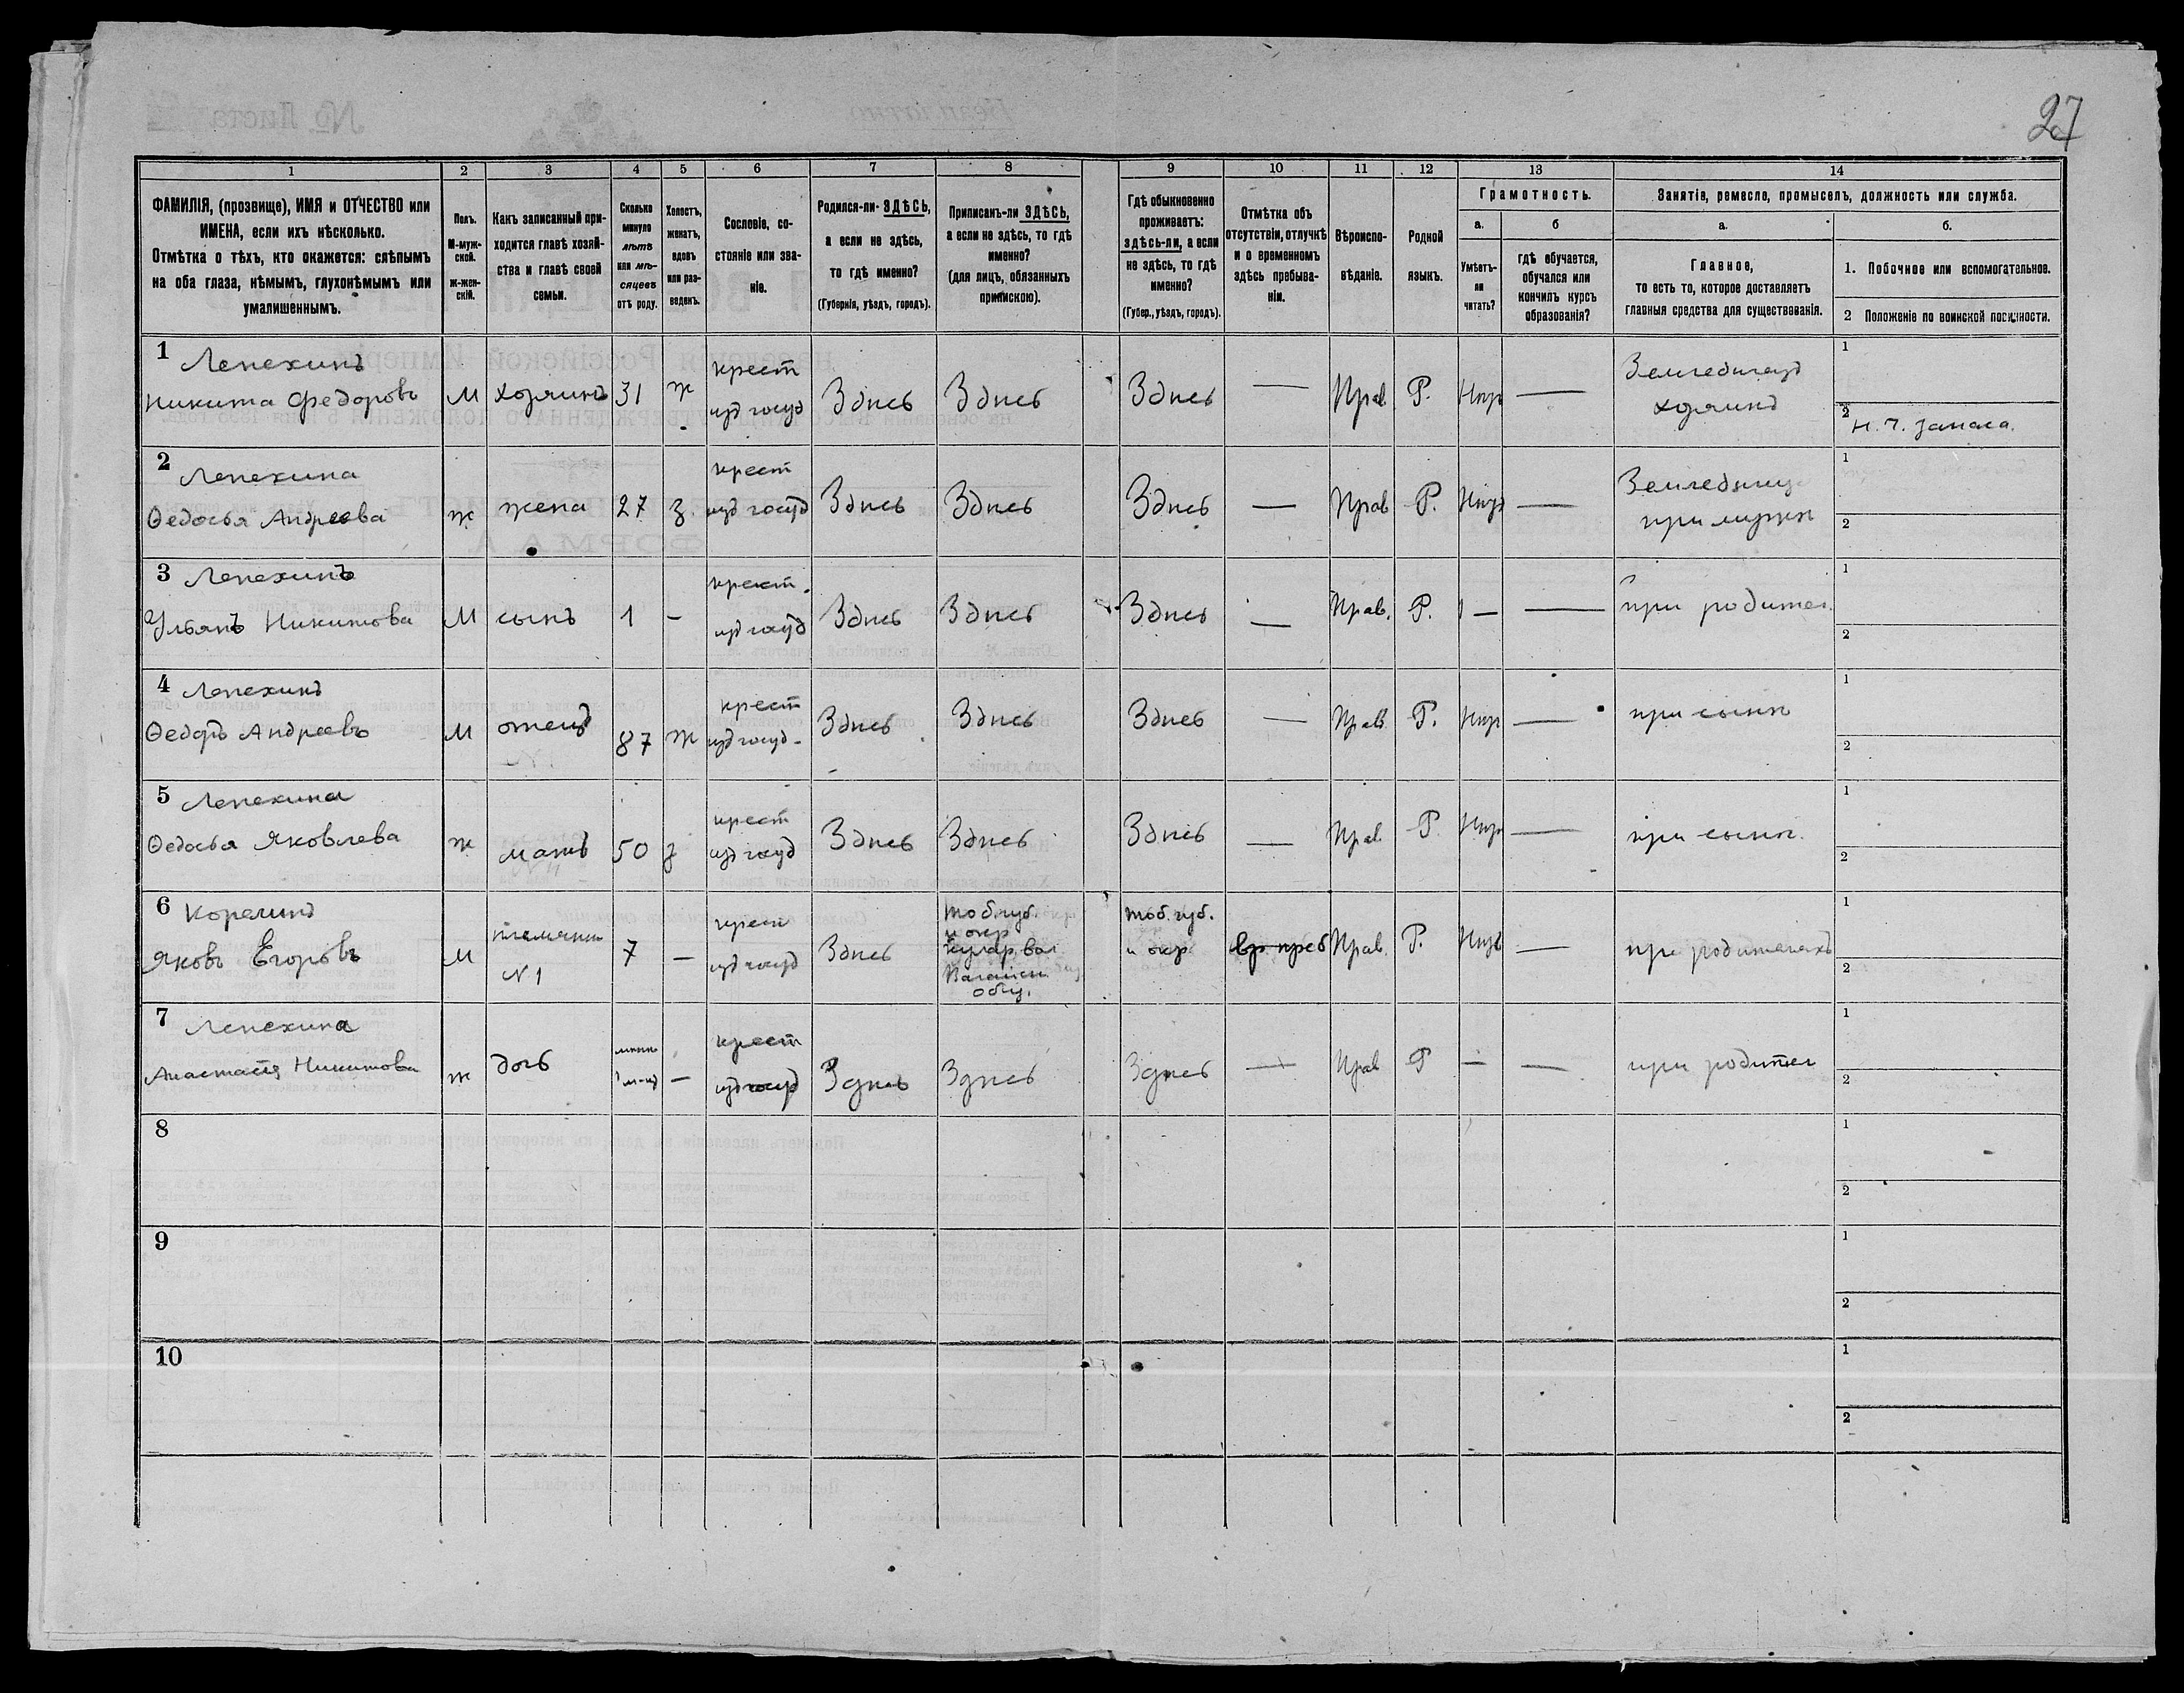 27
1 2 3 4 5 6 7 8 9 10 11 12 13 14
ФАМИЛІЯ, (прозвище), ИМЯ и ОТЧЕСТВО или
ИМЕНА, если ихъ нѣсколько.
Отмѣтка о тѣхъ, кто окажется: слѣпымъ
на оба глаза, нѣмымъ, глухонѣмымъ или
умалишеннымъ.
Полъ.
М-муж-
ской.
ж-жен-
скій.
Какъ записанный при-
ходится главѣ хозяй-
ства и главѣ своей
семьи.
Сколько
минуло
лѣтъ
или мѣ-
сяцевъ
отъ роду.
Холостъ,
женатъ,
вдовъ
или раз-
веденъ.
Сословіе, со-
стояніе или зва-
ніе.
Родился-ли ЗДѢСЬ,
а если не здѣсь,
то гдѣ именно?
(Губернія, уѣздъ, городъ).
Приписанъ-ли ЗДѢСЬ,
а если не здѣсь, то гдѣ
именно?
(для лицъ, обязанныхъ
припискою).
Гдѣ обыкновенно
проживаетъ:
здѣсь-ли, а если
не здѣсь, то гдѣ
именно?
(Губер., уѣздъ, городъ).
Отмѣтка объ
отсутствіи, отлучкѣ
и о временномъ
здѣсь пребыва-
ніи.
Вѣроиспо-
вѣданіе.
Родной
языкъ.
Грамотность.
а.
Умѣетъ-
ли
читать?
б
гдѣ обучается,
обучался или
кончилъ курсъ
образованія?
Занятіе, ремесло, промыселъ, должность или служба.
а.
Главное,
то есть то, которое доставляетъ
главныя средства для существованія.
б.
1. Побочное или вспомогательное.
2 Положеніе по воинской повинности.
1 Лепехинъ
Никита Федоровъ М хозяинъ 31 ж
крест
изъ госуд
Здѣсь Здѣсь Здѣсь — Прав. Р. Нѣтъ —
Земледѣлецъ
хозяинъ
1
2
Н. Ч. запаса.
2 Лепехина
Ѳедосья Андреева ж жена 27 з.
крест
изъ госуд
Здѣсь Здѣсь Здѣсь — Прав Р. Нѣтъ —
при мужѣ
1
2
3 Лепехинъ
Ульянъ Никитова М сынъ 1 —
крест.
изъ госуд
Здѣсь Здѣсь Здѣсь — Прав. Р. — —
при родител.
1
2
4 Лепехинъ
Ѳедоръ Андреевъ М отецъ 87 ж
крест
изъ госуд.
Здѣсь Здѣсь Здѣсь — Прав Р. Нѣтъ —
при сынѣ
1
2
5 Лепехина
Ѳедосья Яковлева ж мать 50 з
крест
изъ госуд
Здѣсь Здѣсь Здѣсь — Прав Р Нѣтъ —
при сынѣ.
1
2
6
Яковъ Егоровъ М
племянн
N1
7 —
крест
изъ госуд
Здѣсь
Тоб. губ.
и окр
общ.
Тоб. губ.
и окр
вр. преб Прав. Р. Нѣтъ —
при родителяхъ
1
2
7 Лепехина
Анастасія Никитова ж дочь
—
крест
изъ госуд
Здѣсь Здѣсь Здѣсь — Прав Р — —
при родител
1
2
8
1
2
9
1
2
10
1
2